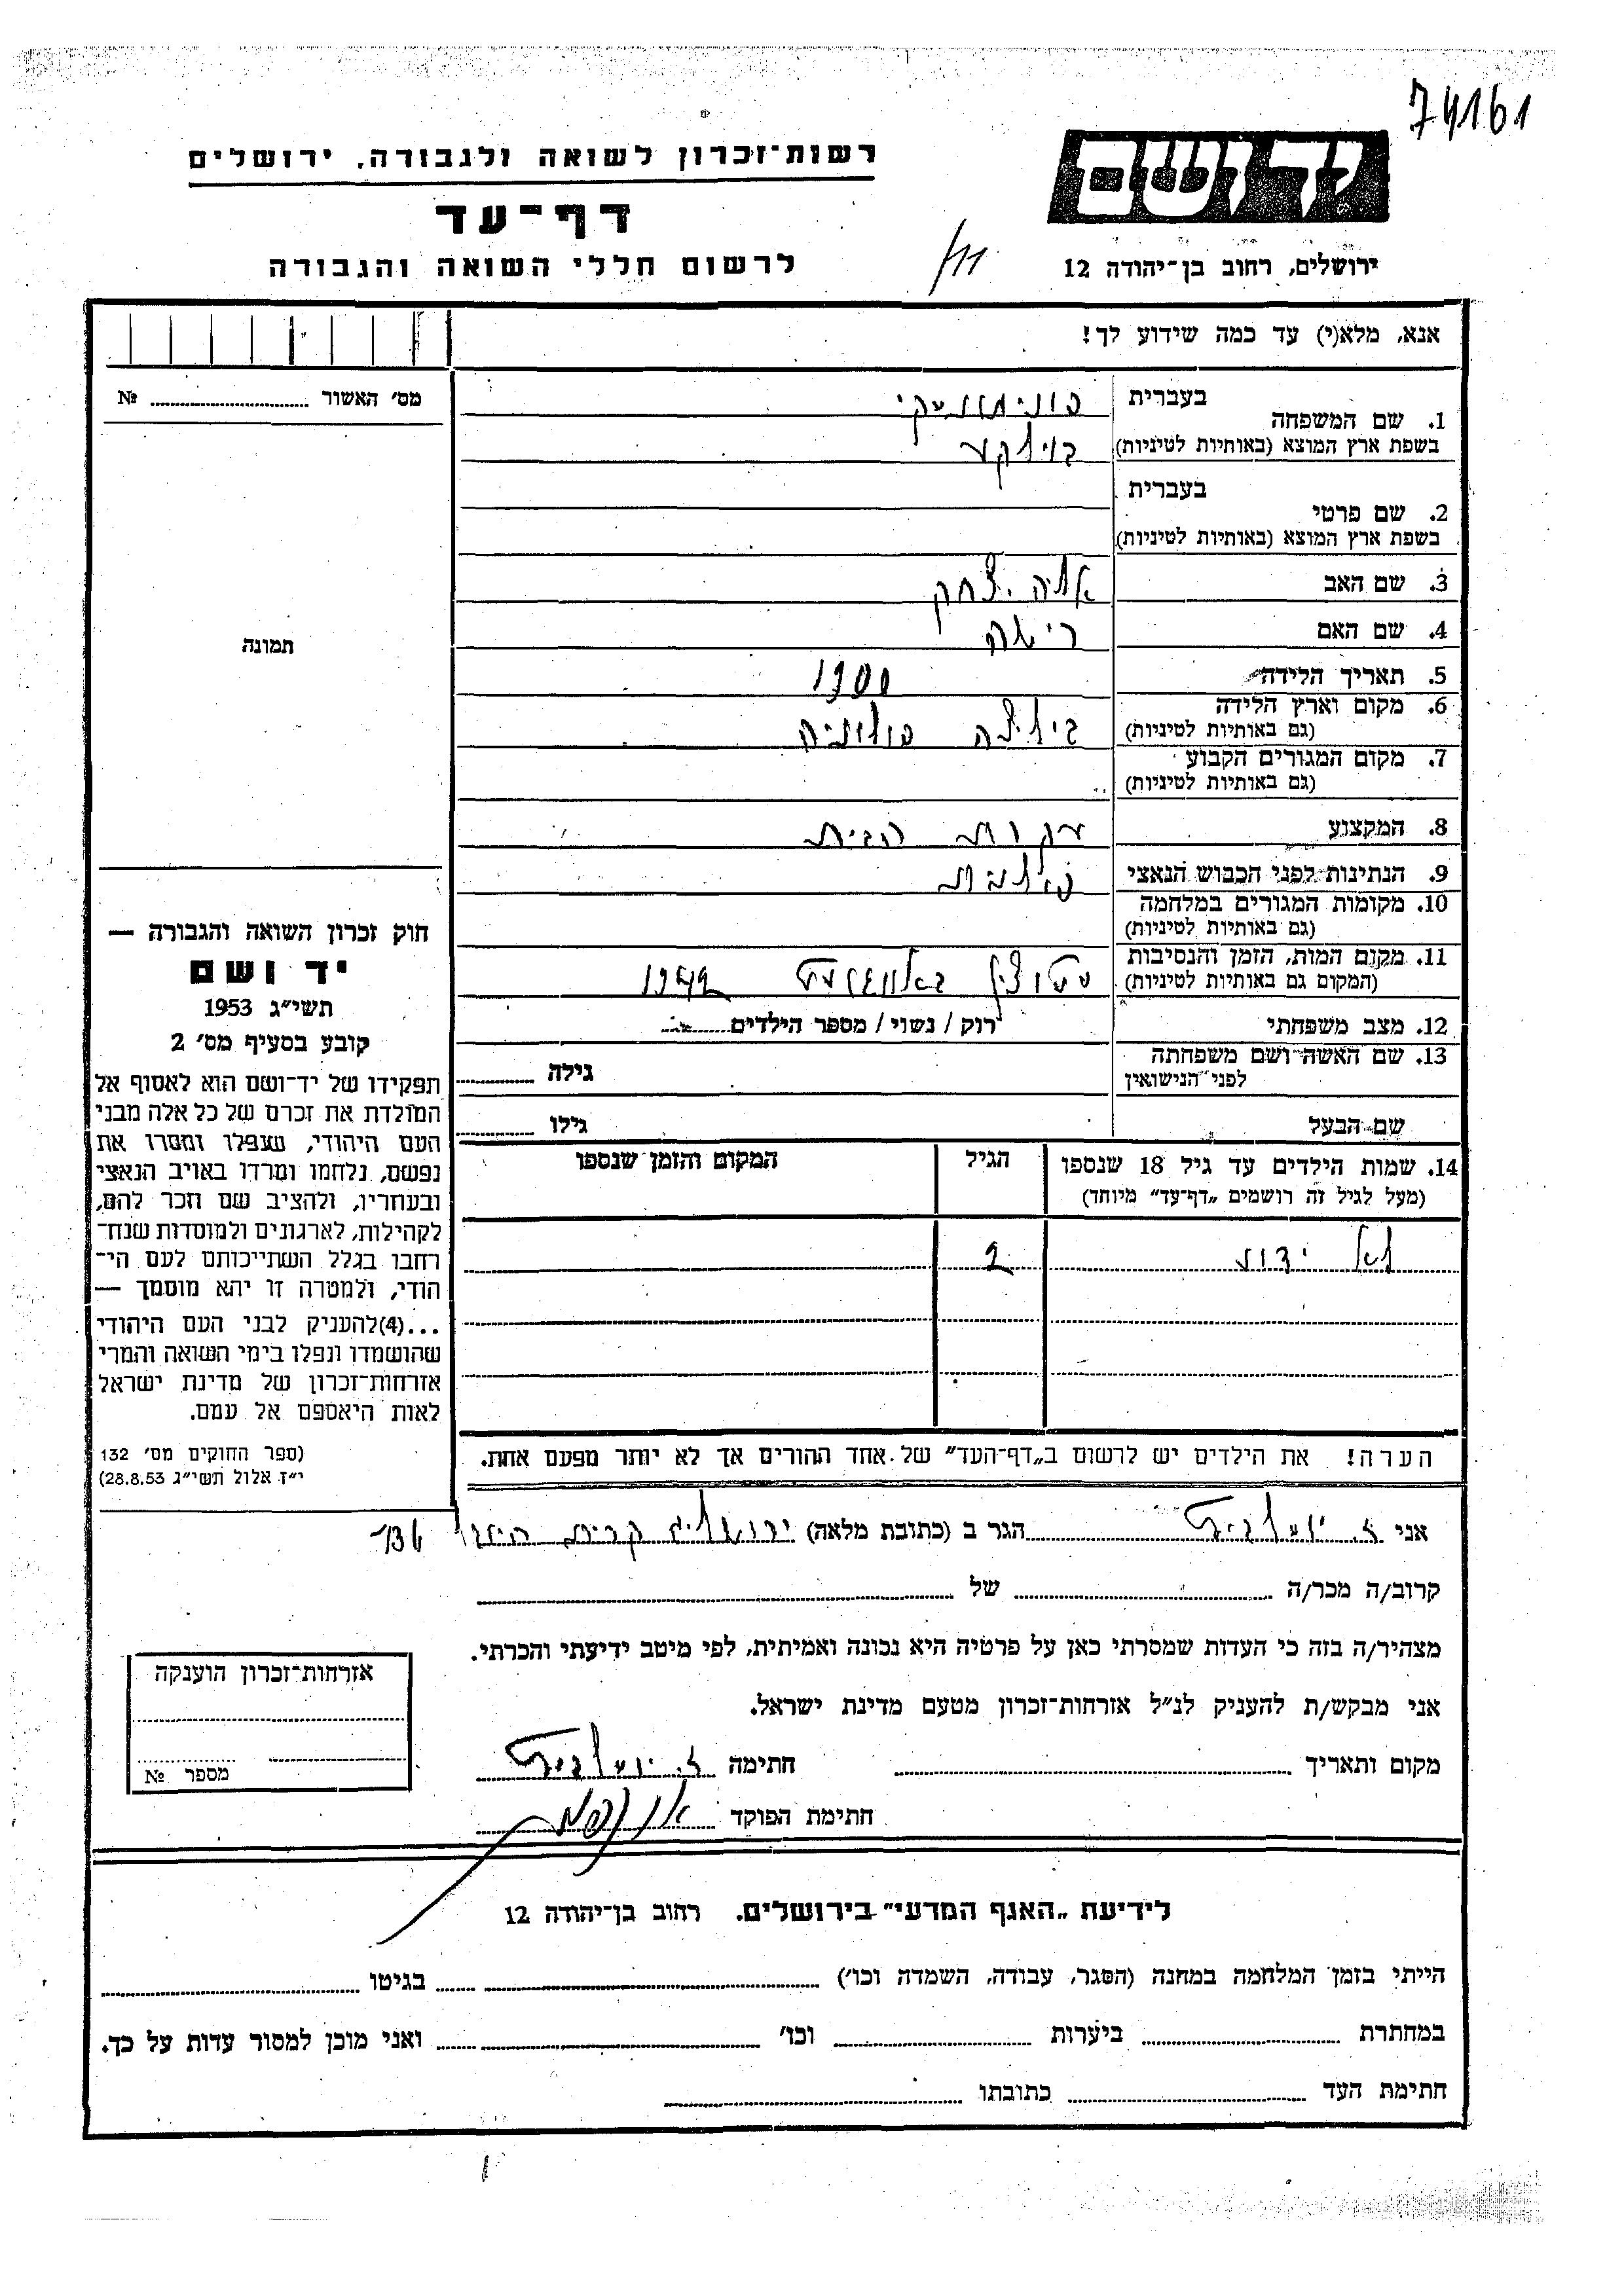 74161
יד ושם
רשות־זכרון לשואה ולגבורה, ירושלים
דף־עד
לרשום חללי השואה והגבורה
ירושלים, רחוב בן־יהודה 12
אנא, מלא(י) עד כמה שידוע לך!
מס׳ האשור № 
בעברית
1. שם המשפחה
בשפת ארץ המוצא (באותיות לטיניות)
בעברית
2. שם פרטי
בשפת ארץ המוצא (באותיות לטיניות)
3. שם האב יצחק
4. שם האם
5. תאריך הלידה 1900
6. מקום וארץ הלידה פולניה
(גם באותיות לטיניות)
7. מקום המגורים הקבוע
(גם באותיות לטיניות)
8. המקצוע עקרת הבית
9. הנתינות לפני הכבוש הנאצי פולנית
10. מקומות המגורים במלחמה
(גם באותיות לטיניות)
11. מקום המות, הזמן והנסיבות 1942
(המקום גם באותיות לטיניות)
12. מצב משפחתי רוק / נשוי / מספר הילדים
13. שם האשה ושם משפחתה גילה
לפני הנישואין
שם הבעל גילו
14. שמות הילדים עד גיל 18 שנספו הגיל המקום והזמן שנספו
(מעל לגיל זה רושמים „דף־עד״ מיוחד)
לא ידוע 2
הערה! את הילדים יש לרשום ב„דף־העד״ של אחד ההורים אך לא יותר מפעם אחת.
תמונה
חוק זכרון השואה והגבורה —
יד ושם
תשי״ג 1953
קובע בסעיף מס׳ 2
תפקידו של יד־ושם הוא לאסוף אל
המולדת את זכרם של כל אלה מבני
העם היהודי, שנפלו ומסרו את
נפשם, נלחמו ומרדו באויב הנאצי
ובעוזריו, ולהציב שם וזכר להם,
לקהילות, לארגונים ולמוסדות שנח־
רחבו בגלל השתייכותם לעם הי־
הודי, ולמטרה זו יהא מוסמך —
...(4)להעניק לבני העם היהודי
שהושמדו ונפלו בימי השואה והמרי
אזרחות־זכרון של מדינת ישראל
לאות היאספם אל עמם.
(ספר החוקים מס׳ 132
י״ז אלול תשי״ג 28.8.53)
אני הגר ב (כתובת מלאה) ירושלים קרית היובל
קרוב/ה מכר/ה של
מצהיר/ה בזה כי העדות שמסרתי כאן על פרטיה היא נכונה ואמיתית, לפי מיטב ידיעתי והכרתי.
אני מבקש/ת להעניק לנ״ל אזרחות־זכרון מטעם מדינת ישראל.
מקום ותאריך חתימה
חתימת הפוקד
אזרחות־זכרון הוענקה
מספר №
לידיעת „האגף המדעי״ בירושלים. רחוב בן־יהודה 12
הייתי בזמן המלחמה במחנה (הסגר, עבודה, השמדה וכו׳) בגיטו
במחתרת ביערות וכו׳ ואני מוכן למסור עדות על כך.
חתימת העד כתובתו